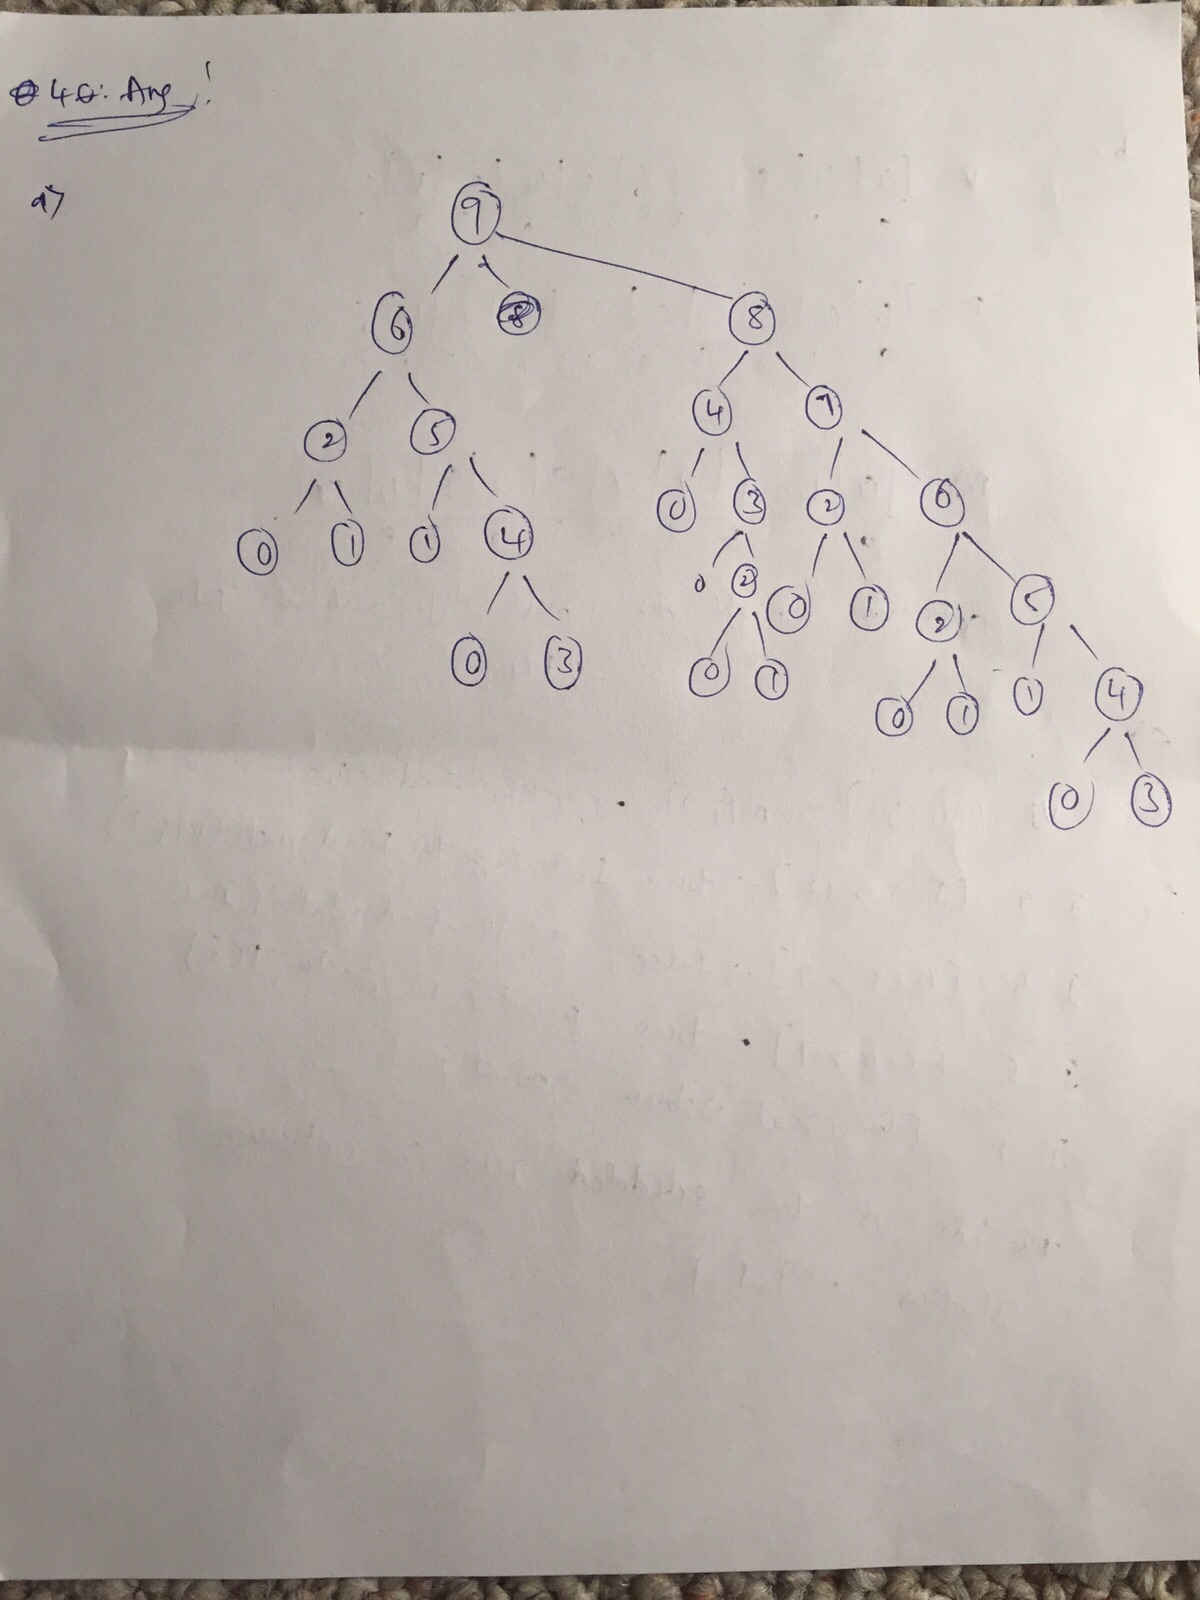 4Q: Ans!
a)
9
6 8
2 5 4 7
0 1 1 4 0 3 2 6
0 2 0 1 2 5
0 3 0 1 0 1 1 4
0 3